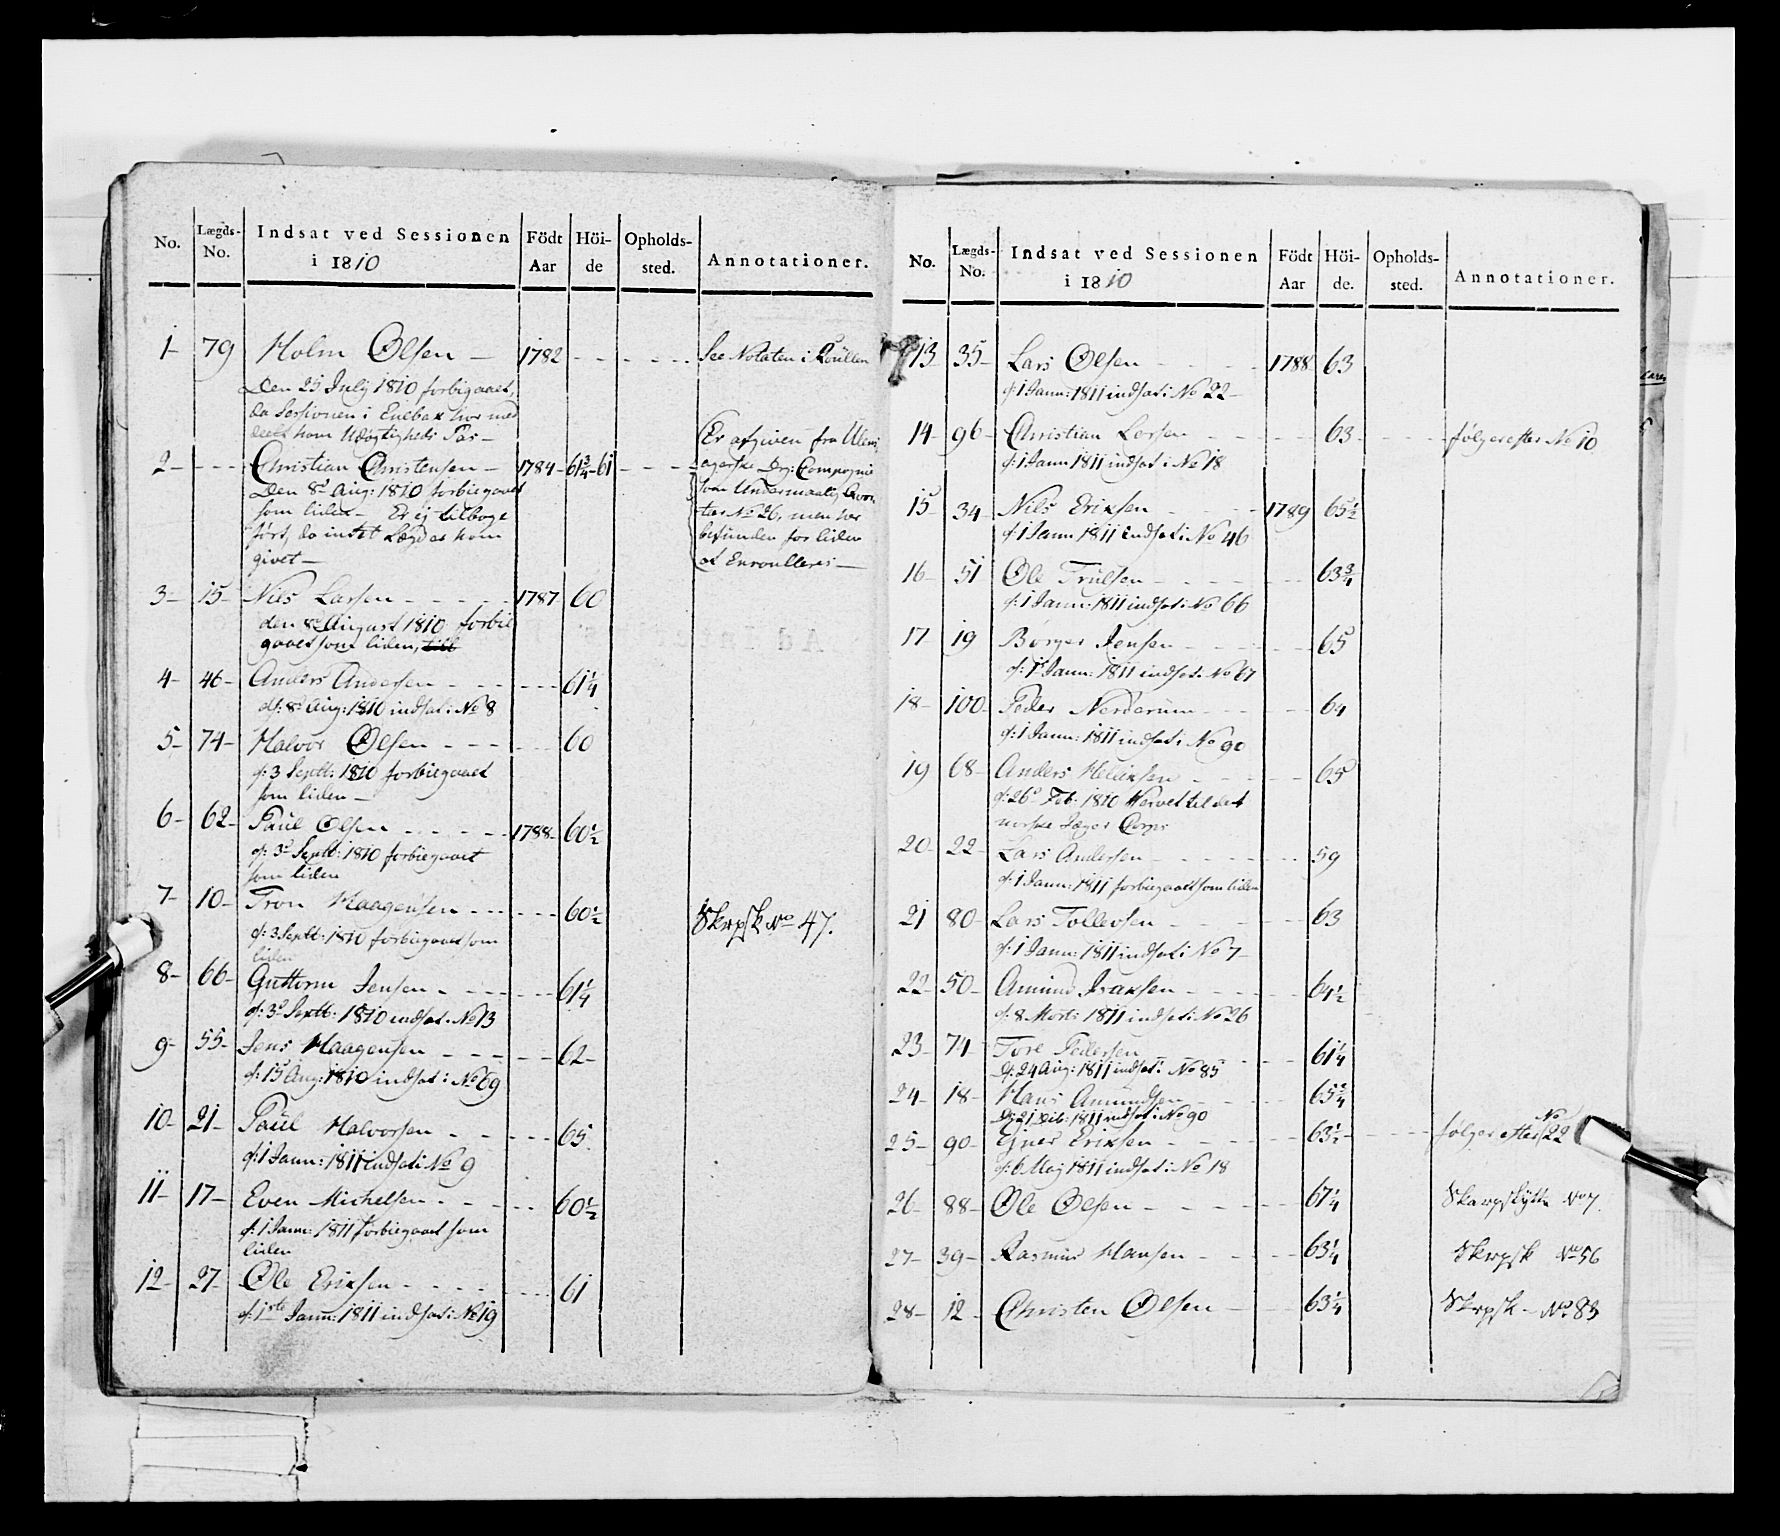 No. Lægds-No. Indsat ved Sessionen i 1810 Födt Aar Höi-de Opholds-sted. Annotationer.
1- 79 Holm Olsen — 1782 - - - - - - See Notaten i Roullen
Den 25 July 1810 forbigaaet,
da Sessionen i Enebak har med
deelt ham Udögtigheds Pas—
2- - - - Christian Christensen — 1784- 61 3/4-61 - - - -
Den 8d Aug: 1810 forbiegaaet
som liden — Er ej tilbage
ført, da intet Lægd er ham
givet —
Er afgiven fra Ulens
agerske Drg: Compagnie
som Undermaalig
No 26, men har
befunden for liden
at Enroulleres —
3- 15- Nils Larsen - - - - 1787 60
den 8de August 1810 forbie
gaaet som liden,
4- 46- Anders Andersen - - - - - 61 1/4
d: 8d Aug: 1810 indsat: No 8
5- 74- Halvor Olsen - - - - - 60
d: 3 Septb: 1810 forbiegaaet
som liden —
6- 62- Paul Olsen - - - - 1788- 60 1/2
d: 3d Septb: 1810 forbiegaaet
som liden
7- 10- Tron Haagensen - - - - - 60 1/2 Skrpsk No 47.
d: 3 Septb: 1810 forbiegaaet som
liden
8- 66- Guttorm Jensen - - - - - 61 1/4
d: 3d Septb: 1810 indsat: No 13
9- 55- Jens Haagensen - - - - - 62-
d: 15 Aug: 1810 indsat: No 69
10- 21- Paul Halvorsen - - - - - 65
d: 1 Janu: 1811 indsat: No 9
11- 17- Even Michelsen - - - - 60 1/2
d: 1 Janu: 1811 forbiegaaet som
liden
12- 27- Ole Eriksen - - - - - 61
d: 1ste Janu: 1811 indsat: No 19
No. Lægds-No. Indsat ved Sessionen i 1810 Födt Aar Höi-de. Opholds-sted. Annotationer.
13 35- Lars Olsen - - - - 1788 63
d: 1 Janu: 1811 indsat: No 22-
14- 96- Christian Larsen - - - - 63- - - - følger efter No 10
d: 1 Janu 1811 indsat: No 18
15 34- Nils Eriksen - - - - 1789 65 1/2
d: 1 Janu 1811 indsat: No 46
16- 51 Ole Trulsen - - - - - 63 3/4
d: 1 Janu: 1811 indsat: No 66
17 19 Börger Jensen - - - - - 65
d: 1 Janu: 1811 indsat: No 67
18- 100- Peder Nerderum - - - - 64
d: 1 Janu: 1811 indsat: No 90
19 68- Anders - - - - 65
d: 26d Feb: 1810 Hervet til det
norske Jæger Corps
20- 22- Lars Andersen - - - - - 59
d: 1 Janu: 1811 forbiegaaet som liden
21 80- Lars Tollevsen - - - - 63
d: 1 Janu: 1811 indsat: No 7-
22- 50- Amund Isaksen - - - - 64 1/2
d: 8 Marts 1811 indsat: No 26
23- 74- Tore Pedersen - - - 61 1/4
d: 24 Aug: 1811 indsat: No 85
24- 18- Hans Amundsen - - - 65 3/4
d: 21 1811 indsat: No 90
25- 90- Eriksen - - - - 63 1/2- - - - følger efter No 22
d: 6 Maj 1811 indsat: No 18
26- 88- Ole Olsen - - - - - 67 1/4 Skarpskytte No 7.
27- 39- Rasmus Hansen - - - - 63 1/4 Skrpsk No 56
28- 12- Christen Olsen - - - 63 1/4 Skrpsk- No 83